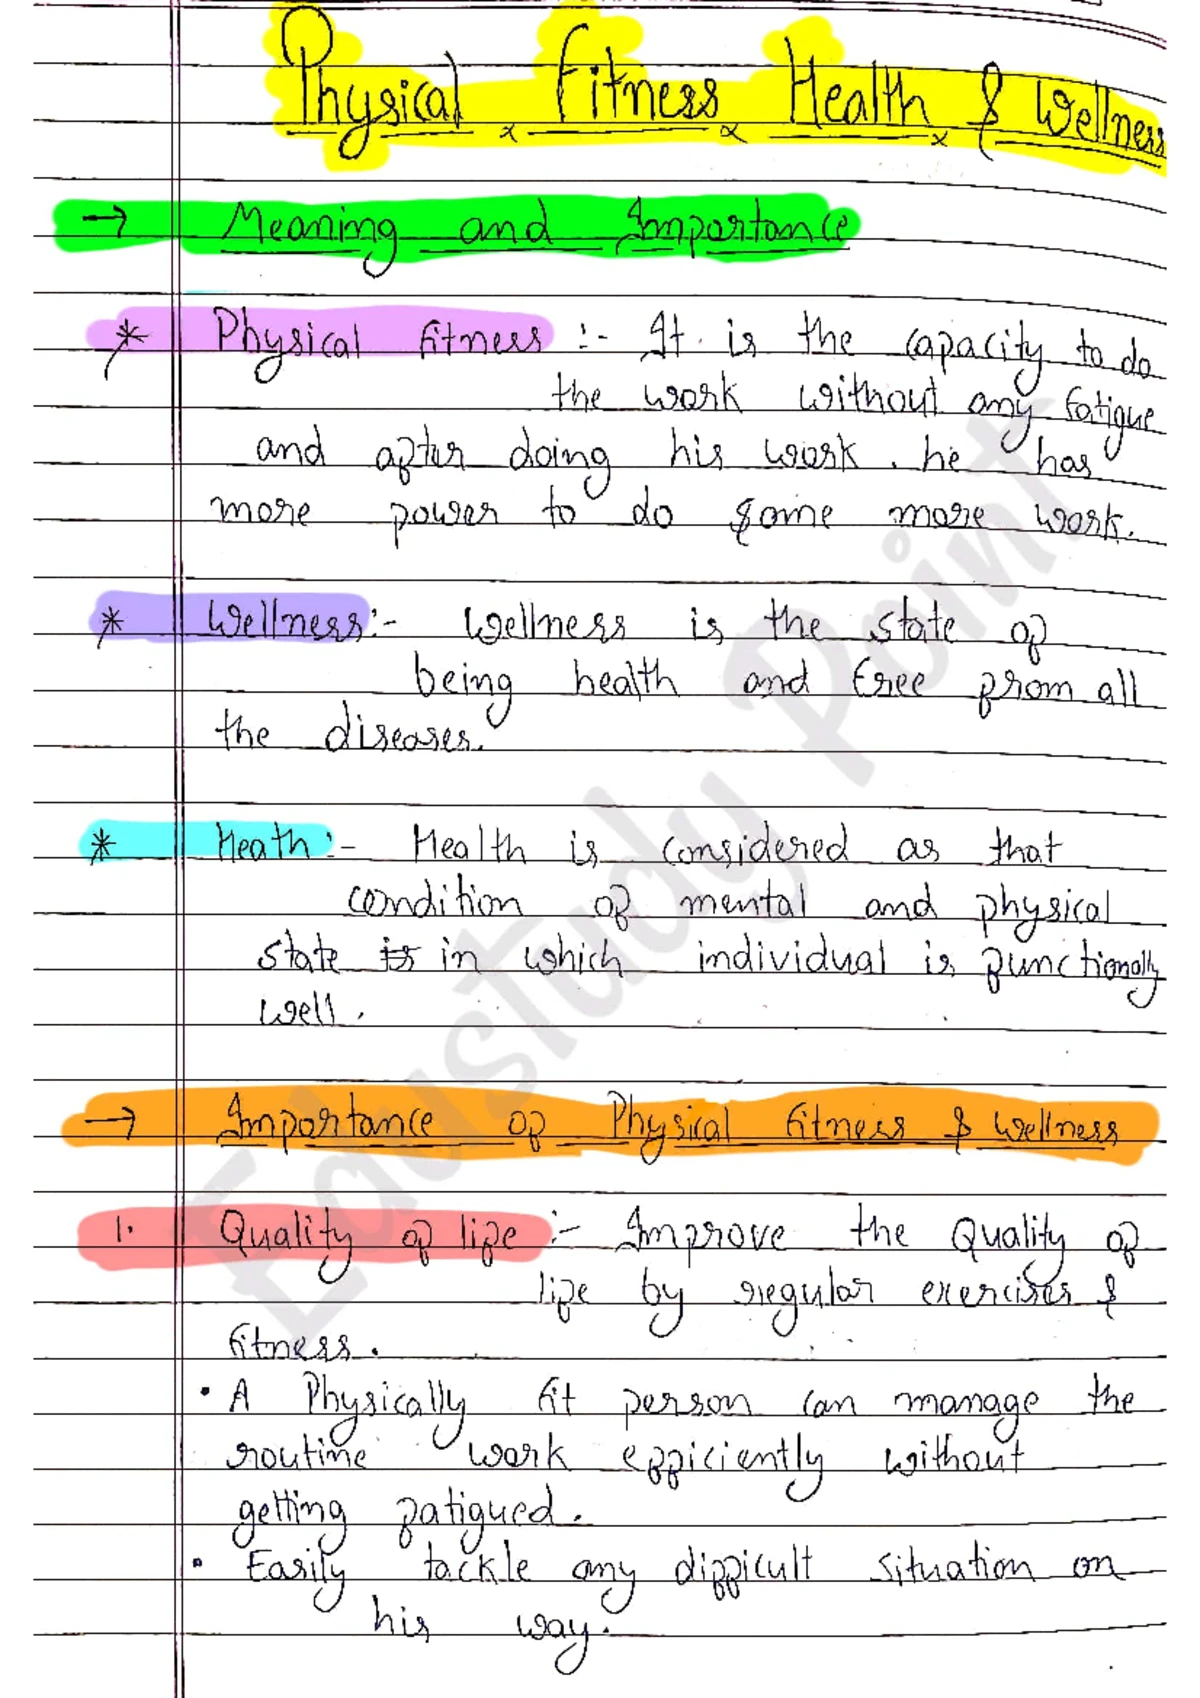 Physical Fitness Health & Wellness
→ Meaning and Importance
* Physical fitness :- It is the capacity to do
the work without any fatigue
and after doing his work. he has
more power to do some more work.
* Wellness:- Wellness is the state of
being health and free from all
the diseases.
* Heath:- Health is considered as that
condition of mental and physical
state is in which individual is functionally
well.
→ Importance of Physical fitness & wellness
1. Quality of life :- Improve the Quality of
life by regular exercises &
fitness.
• A Physically fit person can manage the
routine work efficiently without
getting fatigued.
• Easily tackle any difficult situation on
his way.
Edustudy Point